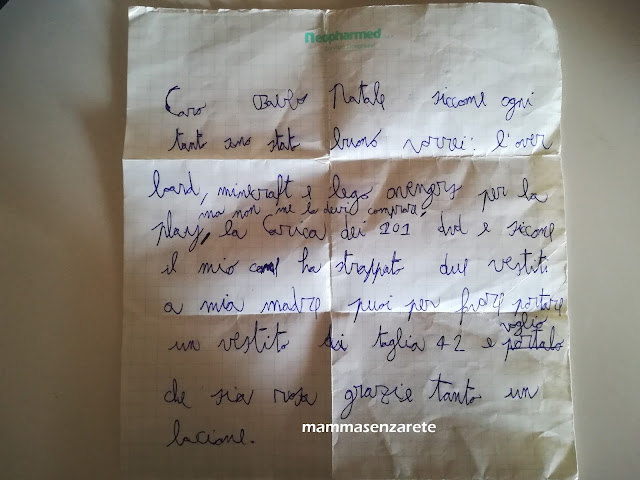 Neopharmed
Caro Babbo Natale siccome ogni
tanto sono stato buono vorrei: l'over
board, minecraft e lego avengers per la
ma non me la devi comprare,
play, la Carica dei 101 dvd e siccome
il mio cane ha strappato due vestiti
a mia madre puoi per favore portare
voglio
un vestito di taglia 42 e portalo
che sia rosa grazie tanto un
bacione.
mammasenzarete